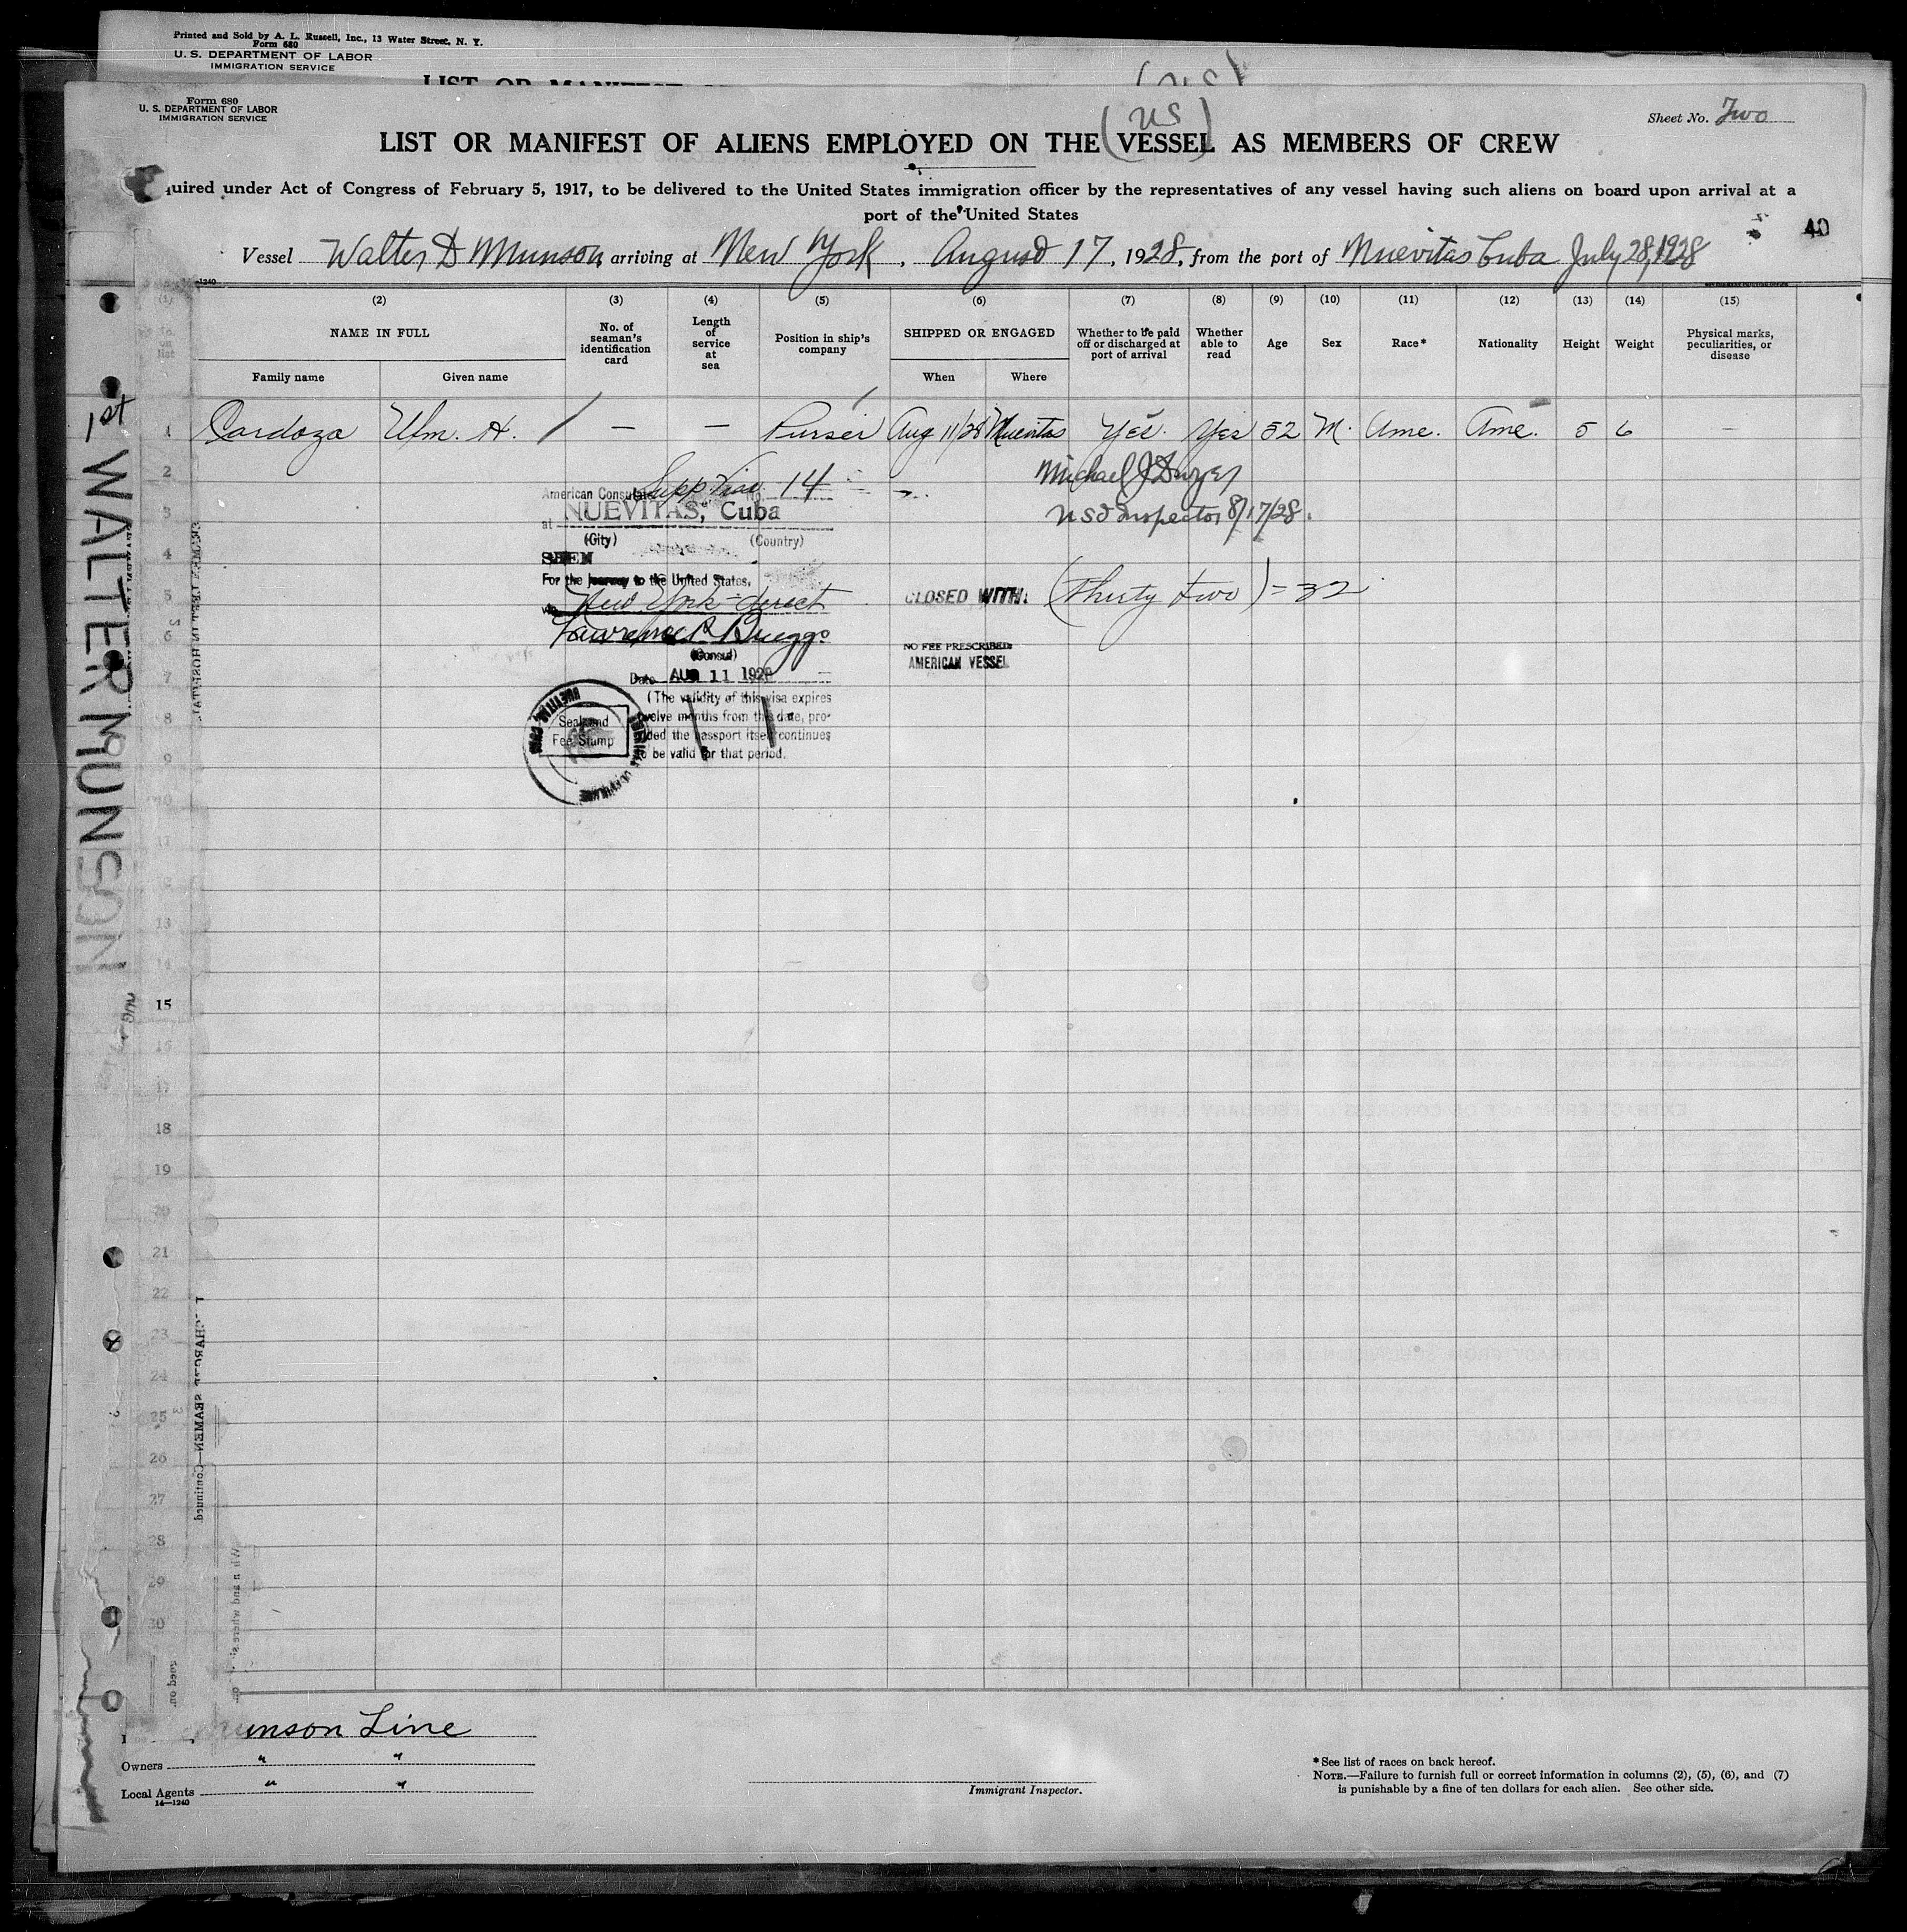 Printed and Sold by A. L. Russell, Inc., 13 Water Street, N. Y.
Form 680
U. S. DEPARTMENT OF LABOR
IMMIGRATION SERVICE
(US)
Form 680
U. S. DEPARTMENT OF LABOR
IMMIGRATION SERVICE
(US)
Sheet No. Two
LIST OR MANIFEST OF ALIENS EMPLOYED ON THE VESSEL AS MEMBERS OF CREW
quired under Act of Congress of February 5, 1917, to be delivered to the United States immigration officer by the representatives of any vessel having such aliens on board upon arrival at a
port of the United States
40
Vessel Walter D Munson, arriving at New York, August 17, 1928, from the port of Nuevitas Cuba July 28, 1928
(1) (2) (3) (4) (5) (6) (7) (8) (9) (10) (11) (12) (13) (14) (15)
No. on list
NAME IN FULL
Family name
Given name
No. of seaman's identification card
Length of service at sea
Position in ship's company
SHIPPED OR ENGAGED
When
Where
Whether to be paid off or discharged at port of arrival
Whether able to read
Age
Sex
Race*
Nationality
Height
Weight
Physical marks, peculiarities, or disease
1 Cardoza Wm. H. / — — Purser Aug 11/28 Nuevitas Yes. Yes 52 M. Ame. Ame. 5 6 —
2
3
4
5
6
7
8
9
10
11
12
13
14
15
16
17
18
19
20
21
22
23
24
25
26
27
28
29
30
American Consulate Supp Visa No. 14
at NUEVITAS, Cuba
(City) (Country)
SEEN
For the journey to the United States,
via New York - direct
Lawrence P. Briggs
(Consul)
Date AUG 11 1928
(The validity of this visa expires
twelve months from this date, pro-
ided the passport itself continues
o be valid for that period.
Seal and
Fee Stamp
Michael J Dwyer
US Inspector 8/17/28.
CLOSED WITH: (Thirty two) = 32
NO FEE PRESCRIBED.
AMERICAN VESSEL
1st WALTER MUNSON
SEAMEN—Continued.
unson Line
Owners " "
Local Agents " "
14—1240
Immigrant Inspector.
*See list of races on back hereof.
NOTE.—Failure to furnish full or correct information in columns (2), (5), (6), and (7)
is punishable by a fine of ten dollars for each alien. See other side.